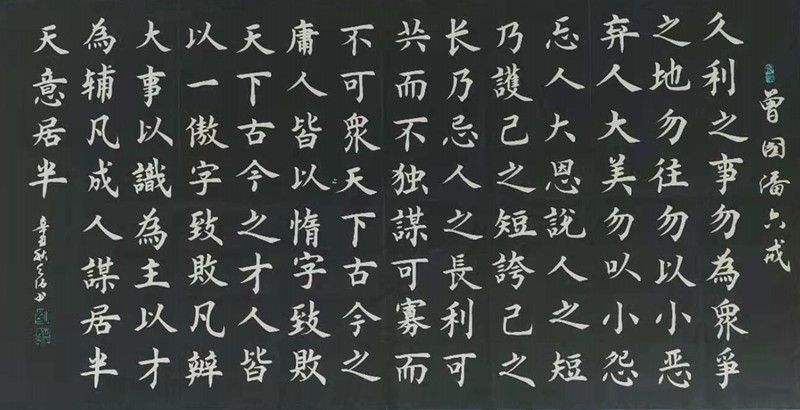 曾國潘六戒
久利之事勿為眾爭
之地勿往勿以小恶
弃人大美勿以小怨
忘人大恩說人之短
乃護己之短誇己之
长乃忌人之長利可
共而不独謀可寡而
不可眾天下古今之
庸人皆以惰字致敗
天下古今之才人皆
以一傲字致敗凡辦
大事以識為主以才
為辅凡成人謀居半
天意居半
辛丑秋